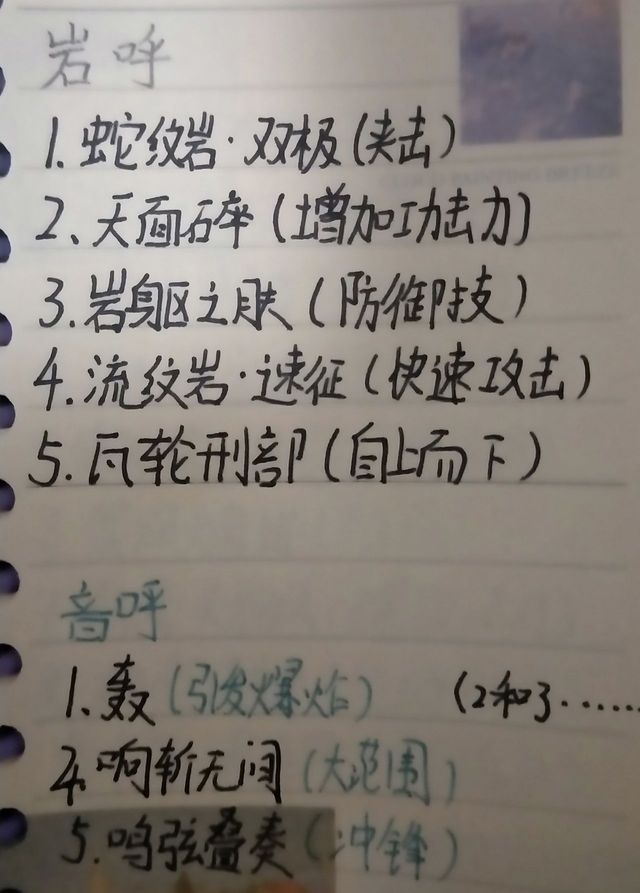 岩呼
1. 蛇纹岩·双极(夹击)
2、天面碎(增加功击力)
3.岩躯之肤(防御技)
4.流纹岩·速征(快速攻击)
5.瓦轮刑部(自上而下)
音呼
1、轰(引发爆炸) (2和3……
4.响斩无间(大范围)
5.鸣弦叠奏(冲锋)